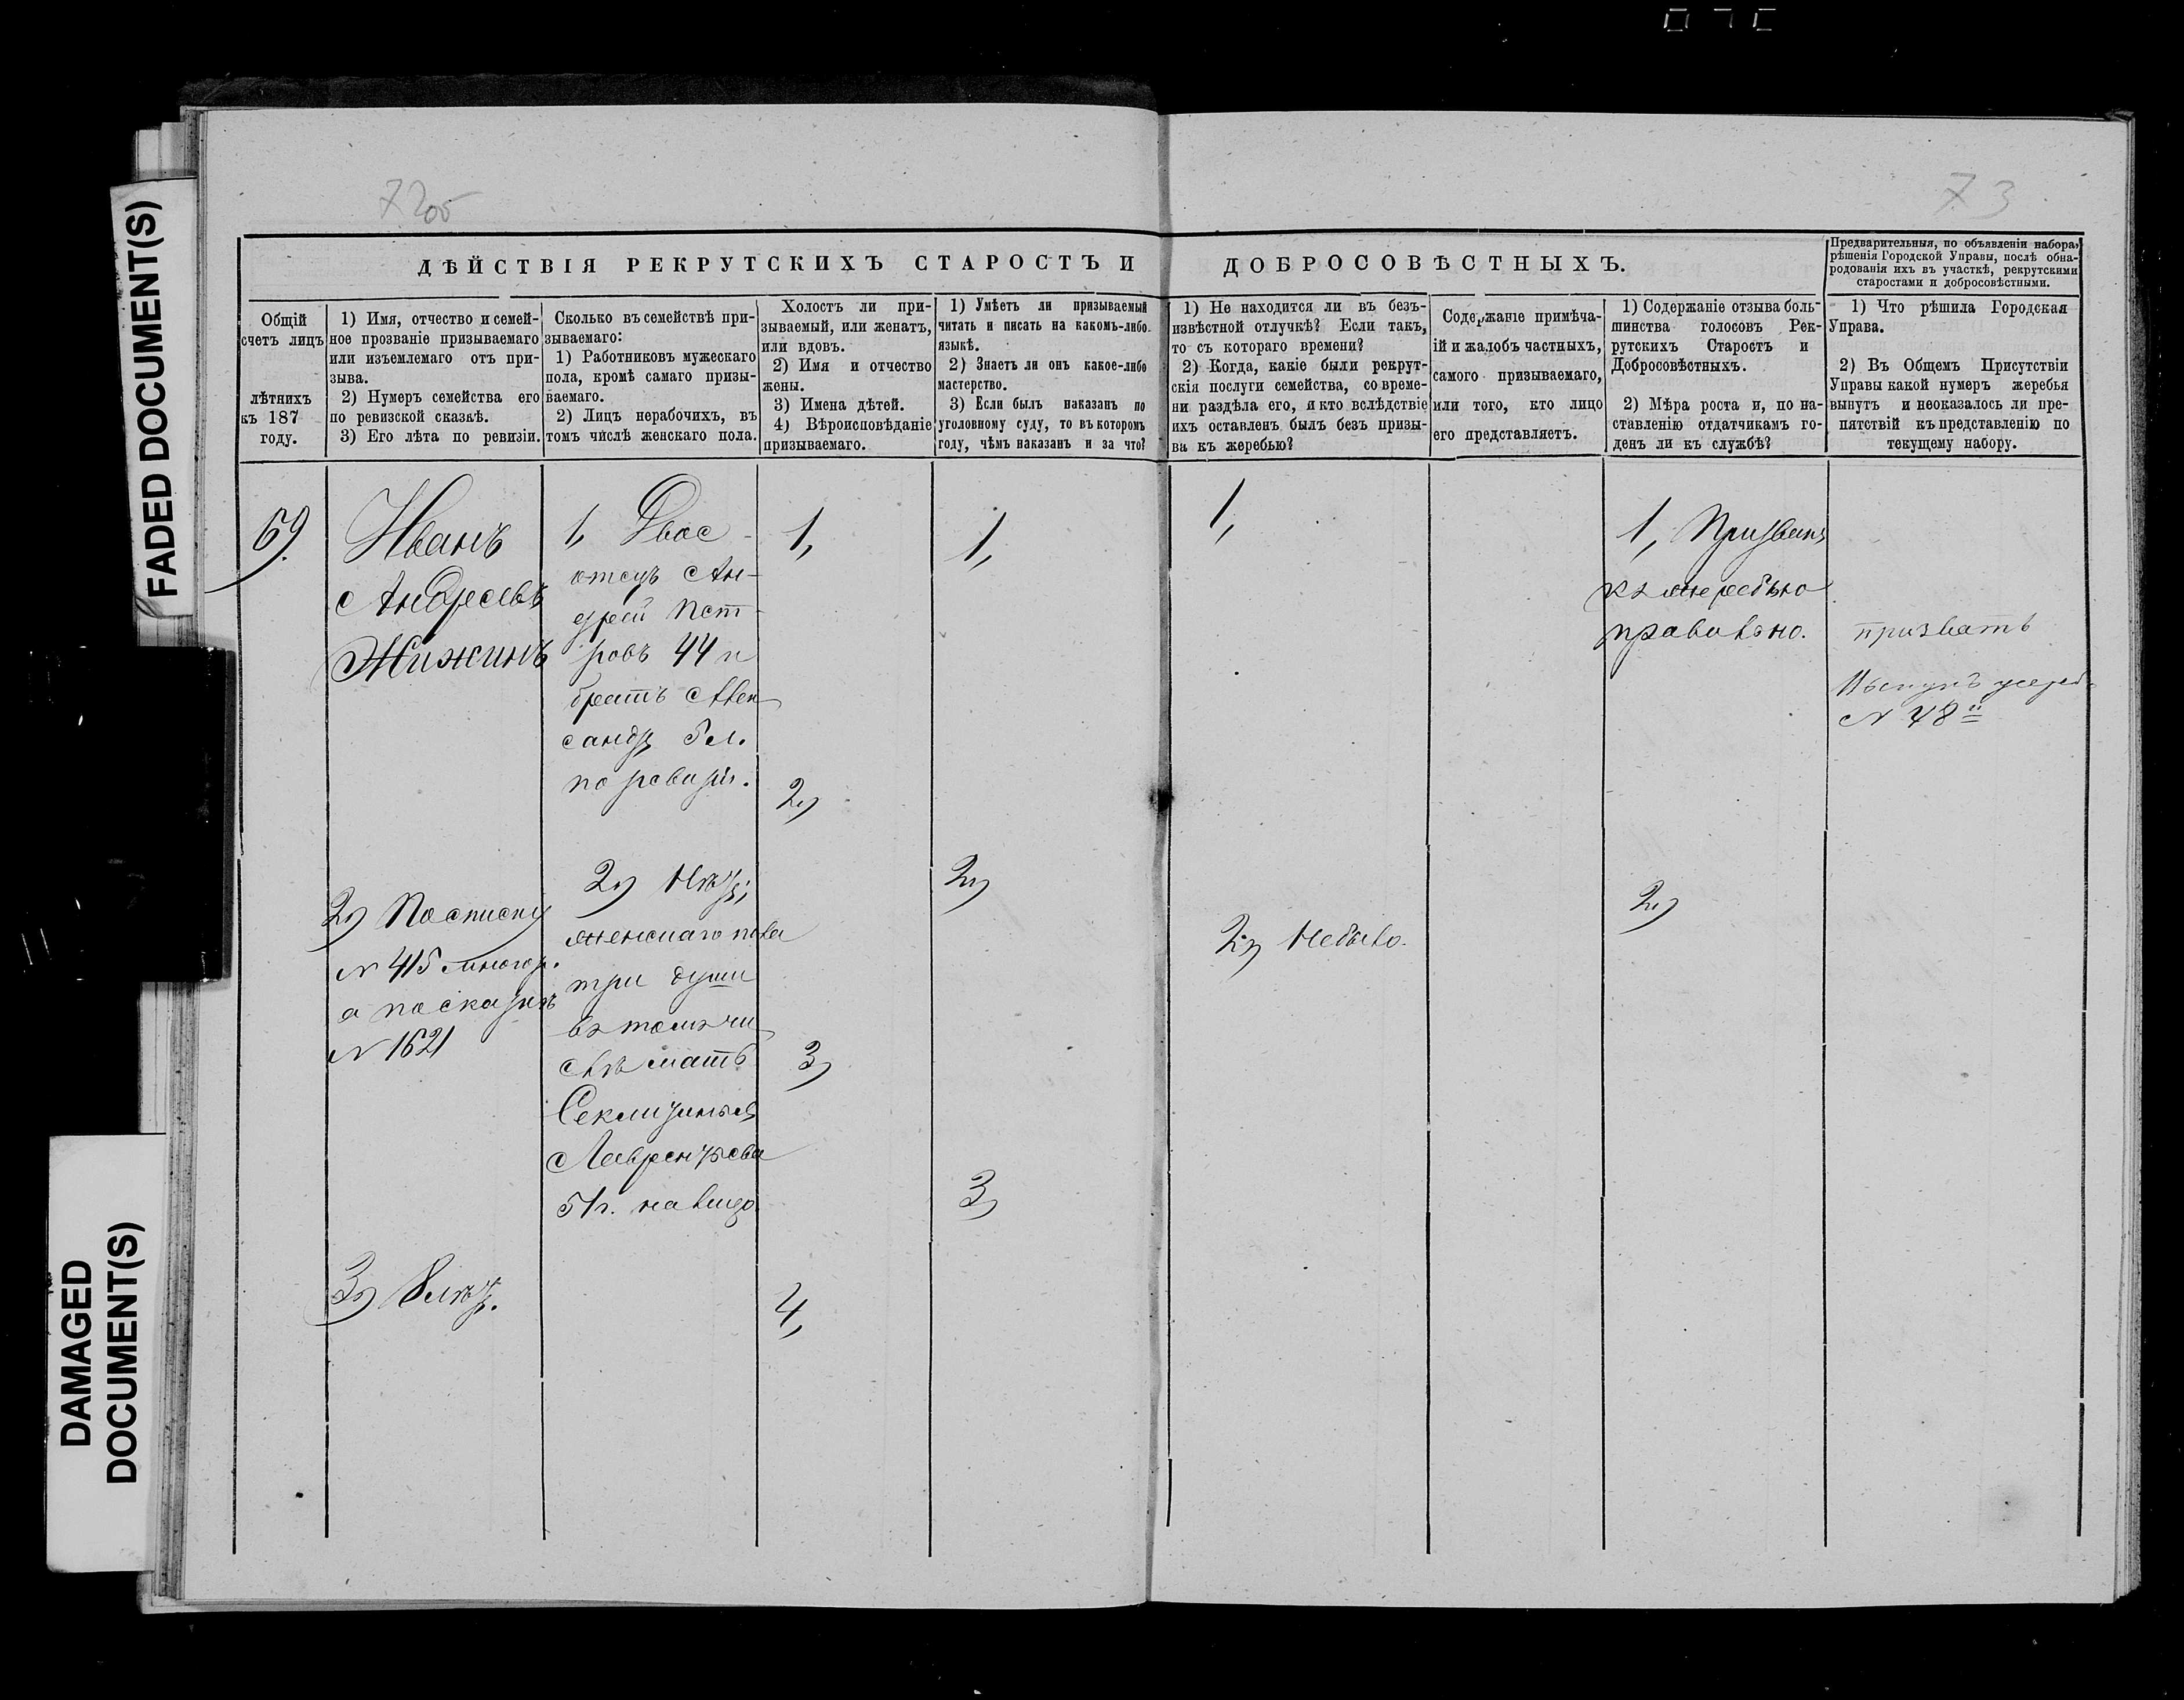 FADED DOCUMENT(S)
DAMAGED
DOCUMENT(S)
7205
73
ДѢЙСТВІЯ РЕКРУТСКИХЪ СТАРОСТЪ И ДОБРОСОВѢСТНЫХЪ.
Предварительныя, по объявленіи набора,
рѣшенія Городской Управы, послѣ обна-
родованія ихъ въ участкѣ, рекрутскими
старостами и добросовѣстными.
Общій
счетъ лицъ
лѣтнихъ
къ 187
году.
1) Имя, отчество и семей-
ное прозваніе призываемаго
или изъемлемаго отъ при-
зыва.
2) Нумеръ семейства его
по ревизской сказкѣ.
3) Его лѣта по ревизіи.
Сколько въ семействѣ при-
зываемаго:
1) Работниковъ мужескаго
пола, кромѣ самаго призы-
ваемаго.
2) Лицъ нерабочихъ, въ
томъ числѣ женскаго пола.
Холостъ ли при-
зываемый, или женатъ,
или вдовъ.
2) Имя и отчество
жены.
3) Имена дѣтей.
4) Вѣроисповѣданіе
призываемаго.
1) Умѣетъ ли призываемый
читать и писать на какомъ-либо
языкѣ.
2) Знаетъ ли онъ какое-либо
мастерство.
3) Если былъ наказанъ по
уголовному суду, то въ которомъ
году, чѣмъ наказанъ и за что?
1) Не находится ли въ безъ-
извѣстной отлучкѣ? Если такъ,
то съ котораго времени?
2) Когда, какіе были рекрут-
скія послуги семейства, со време-
ни раздѣла его, и кто вслѣдствіе
ихъ оставленъ былъ безъ призы-
ва къ жеребью?
Содержаніе примѣча-
ій и жалобъ частныхъ,
самого призываемаго,
или того, кто лицо
его представляетъ.
1) Содержаніе отзыва боль-
шинства голосовъ Рек-
рутскихъ Старостъ и
Добросовѣстныхъ.
2) Мѣра роста и, по на-
ставленію отдатчикамъ го-
денъ ли къ службѣ?
1) Что рѣшила Городская
Управа.
2) Въ Общемъ Присутствіи
Управы какой нумеръ жеребья
вынутъ и неоказалось ли пре-
пятствій къ представленію по
текущему набору.
69.
Иванъ
Андреевъ
Жижинъ
2) По списку
№ 415
а по сказкѣ
№ 1621
3)
1, Двое
отецъ Ан-
дрей Пет-
ровъ 44 и
братъ Алек
сандръ 5 л.
по ревизіи.
2) Нѣтъ;
женскаго пола
три души
въ томъ чи
слѣ мать
Лаврентьева
51 г. на лицо
1,
2)
3)
4,
1,
2)
3)
1,
2) Небыло.
1, Призванъ
къ жеребью
правильно.
2)
призвать
Вынулъ жереб.
№ 48й